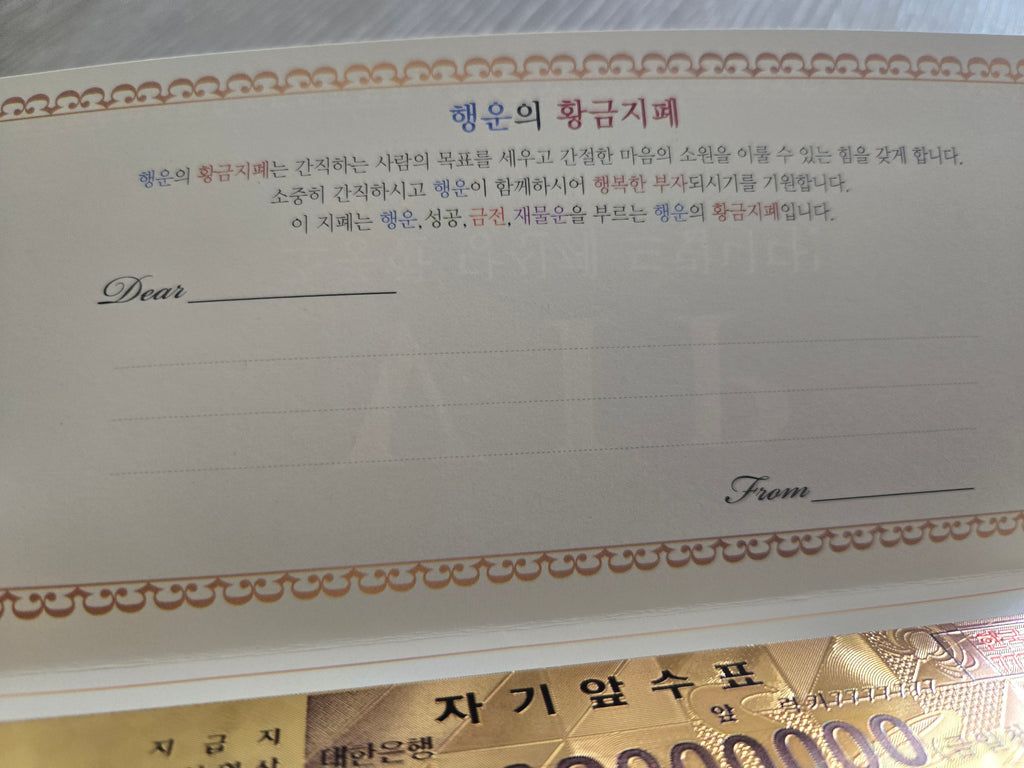 행운의 황금지폐
행운의 황금지폐는 간직하는 사람의 목표를 세우고 간절한 마음의 소원을 이룰 수 있는 힘을 갖게 합니다.
소중히 간직하시고 행운이 함께하시어 행복한 부자되시기를 기원합니다.
이 지폐는 행운, 성공, 금전, 재물운을 부르는 행운의 황금지폐입니다.
Dear
From
자기앞수표
지급지
대한은행
앞